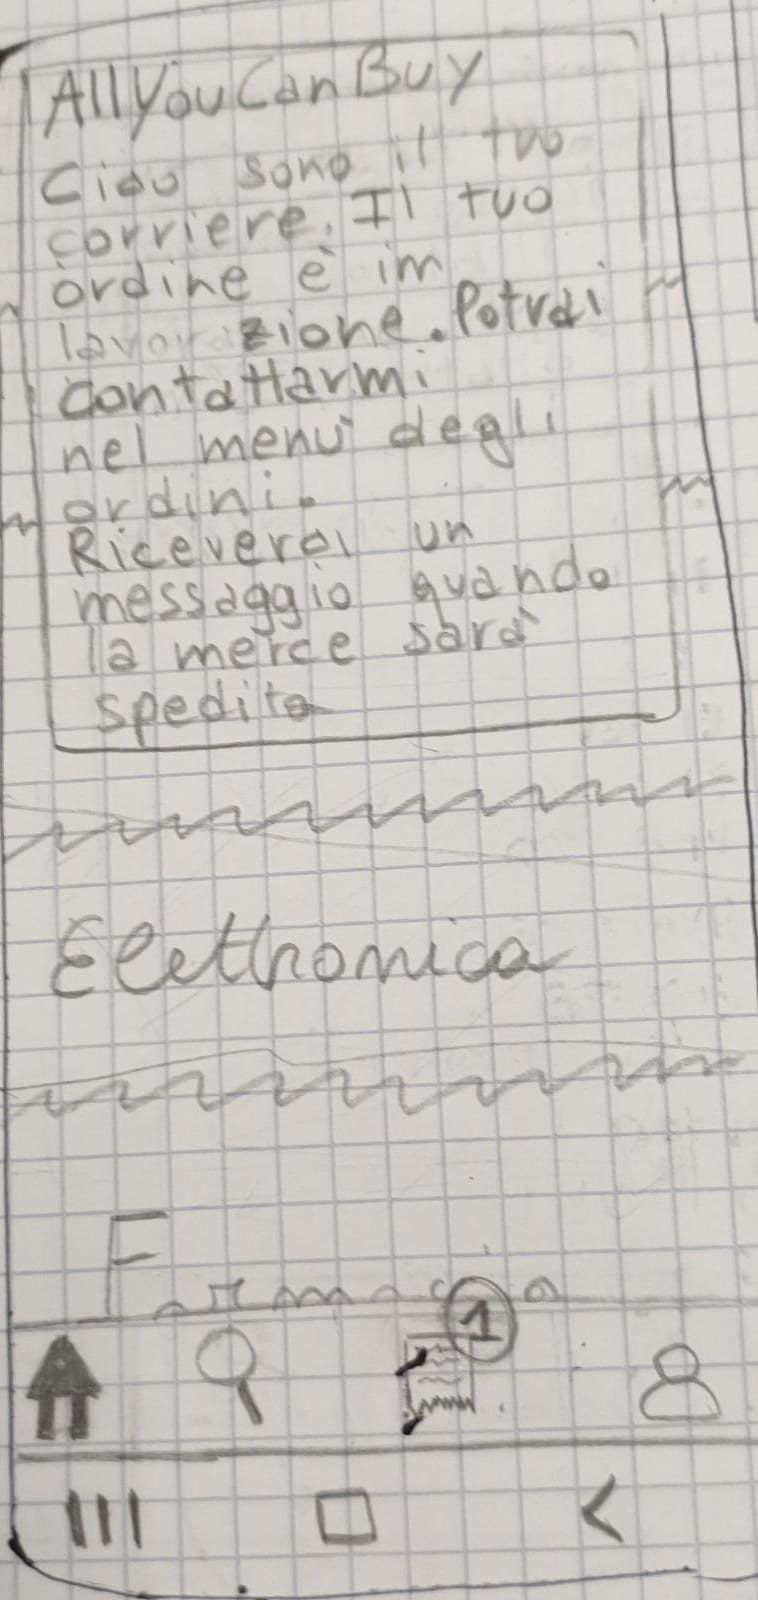 AllYouCanBuy
Ciao sono il tuo
corriere. Il tuo
ordine è im
lavorazione. Potrai
contattarmi
nel menù degli
ordini.
Riceverai un
messaggio quando
la merce sarà
spedita
Elettronica
Farmacia
1